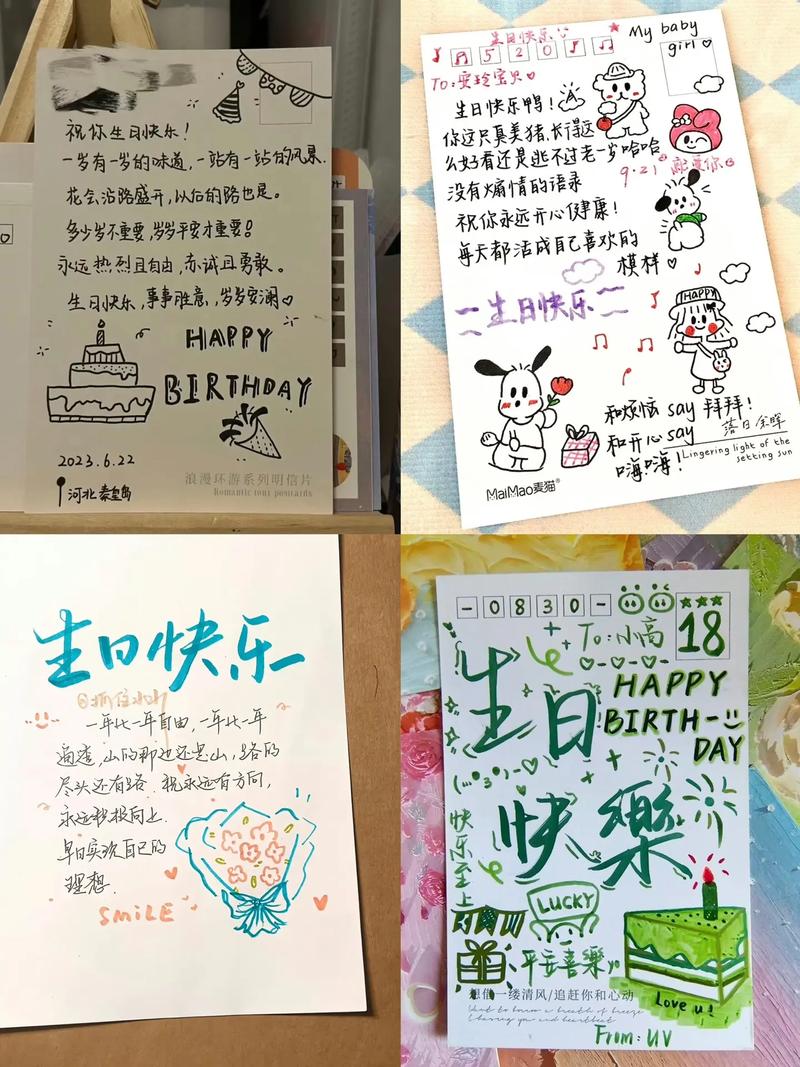 祝你生日快乐！
一岁有一岁的味道，一站有一站的风景.
花会沿路盛开，以后的路也是。
多少岁不重要，岁岁平安才重要！
永远热烈且自由，赤诚且勇敢。
生日快乐，事事胜意，岁岁安澜♡
HAPPY
BIRTHDAY
2023.6.22
河北秦皇岛
浪漫环游系列明信片
Romantic tour postcards
生日快乐
My baby
girl♡
520
To:雯玲宝贝♡
生日快乐鸭！
你这只真美猪，长得这
么好看还是逃不过老一岁哈哈
9.21
没有煽情的语录
祝你永远开心健康！
每天都活成自己喜欢的
模样♡
HAPPY
生日快乐
和烦恼 say 拜拜！
和开心 say
嗨嗨！
落日余晖
Lingering light of the
setting sun
MaiMao麦猫®
生日快乐
一年比一年自由，一年比一年
通透，山的那边还是山，路的
尽头还有路，祝永远有方向，
永远积极向上.
早日实现自己的
理想.
SMILE
-0830-
To:小高
18
生日
HAPPY
BIRTH-
DAY
快樂
快乐至上
LUCKY
平安喜樂
想借一缕清风/追赶你和心动
Love u!
From:UV